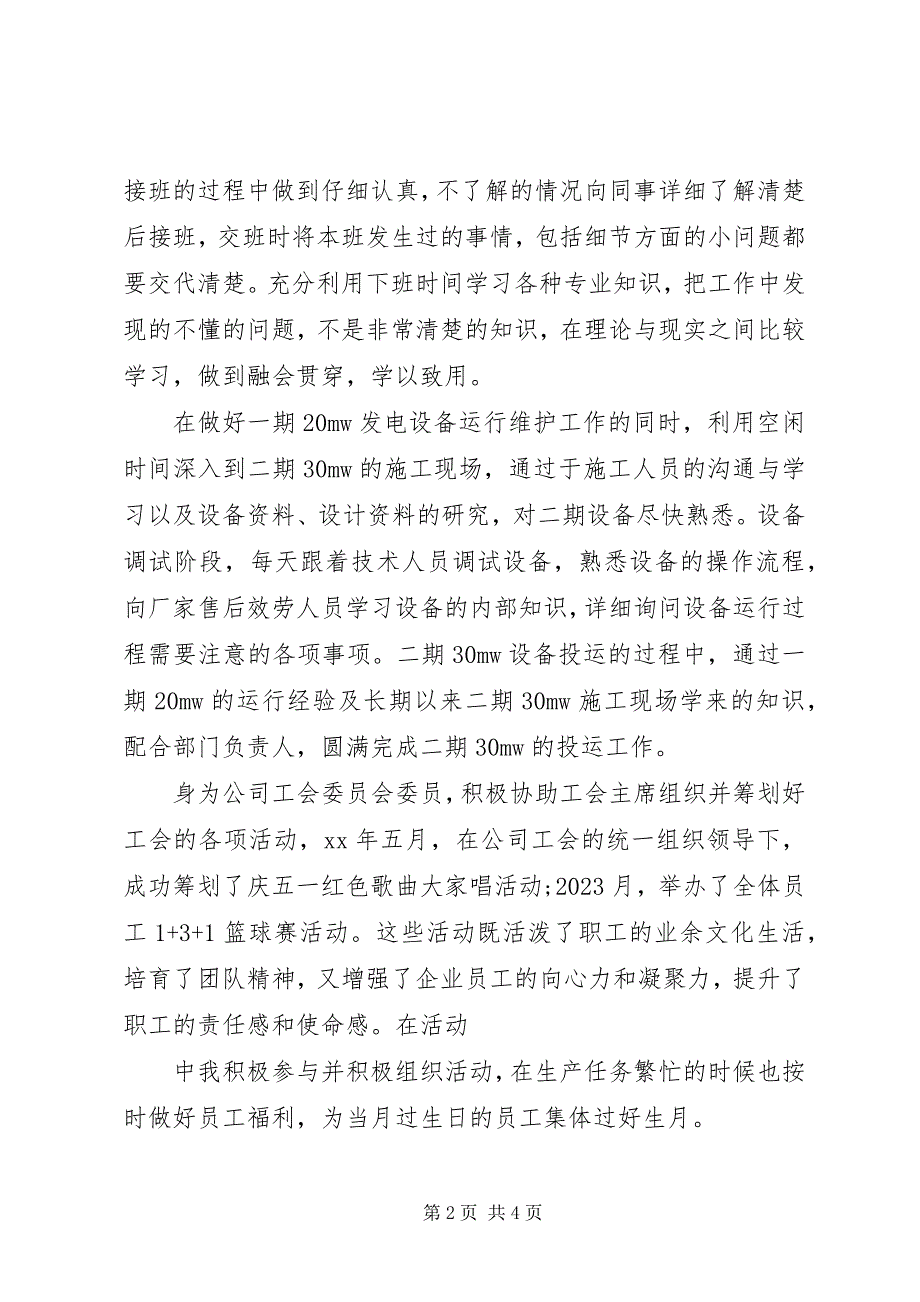 接班的过程中做到仔细认真，不了解的情况向同事详细了解清楚
后接班，交班时将本班发生过的事情，包括细节方面的小问题都
要交代清楚。充分利用下班时间学习各种专业知识，把工作中发
现的不懂的问题，不是非常清楚的知识，在理论与现实之间比较
学习，做到融会贯穿，学以致用。
在做好一期 20mw 发电设备运行维护工作的同时，利用空闲
时间深入到二期 30mw 的施工现场，通过于施工人员的沟通与学
习以及设备资料、设计资料的研究，对二期设备尽快熟悉。设备
调试阶段，每天跟着技术人员调试设备，熟悉设备的操作流程，
向厂家售后效劳人员学习设备的内部知识，详细询问设备运行过
程需要注意的各项事项。二期 30mw 设备投运的过程中，通过一
期 20mw 的运行经验及长期以来二期 30mw 施工现场学来的知识，
配合部门负责人，圆满完成二期 30mw 的投运工作。
身为公司工会委员会委员，积极协助工会主席组织并筹划好
工会的各项活动，xx 年五月，在公司工会的统一组织领导下，
成功筹划了庆五一红色歌曲大家唱活动;2023 月，举办了全体员
工 1+3+1 篮球赛活动。这些活动既活泼了职工的业余文化生活，
培育了团队精神，又增强了企业员工的向心力和凝聚力，提升了
职工的责任感和使命感。在活动
中我积极参与并积极组织活动，在生产任务繁忙的时候也按
时做好员工福利，为当月过生日的员工集体过好生月。
第 2 页 共 4 页